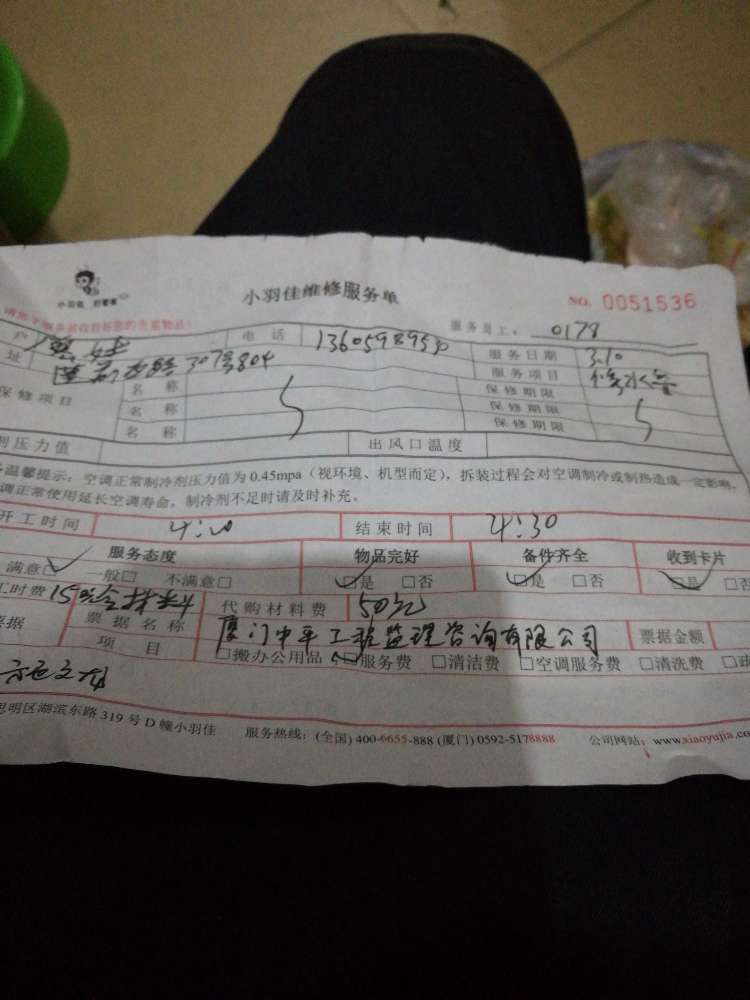 小羽佳 好管家
小羽佳维修服务单
NO. 0051536
服务员工: 0178
户 电话 13605989590 服务日期 3.10
址 307号804 服务项目 修水
保修项目 名称 保修期限
名称 保修期限
名称 保修期限
剂压力值 出风口温度
温馨提示:空调正常制冷剂压力值为 0.45mpa(视环境、机型而定),拆装过程会对空调制冷或制热造成一定影响,
调正常使用延长空调寿命,制冷剂不足时请及时补充。
开工时间 4:20 结束时间 4:30
服务态度 物品完好 备件齐全 收到卡片
满意□ 一般□ 不满意□ □是 □否 □是 □否 □是 □否
工时费 150含材料 代购材料费 50元
票据 票据名称 厦门中平工程监理咨询有限公司 票据金额
项目 □搬办公用品 □服务费 □清洁费 □空调服务费 □清洗费
思明区湖滨东路 319 号 D 幢小羽佳 服务热线:(全国) 400-6655-888 (厦门) 0592-5178888 公司网站:www.xiaoyujia.co